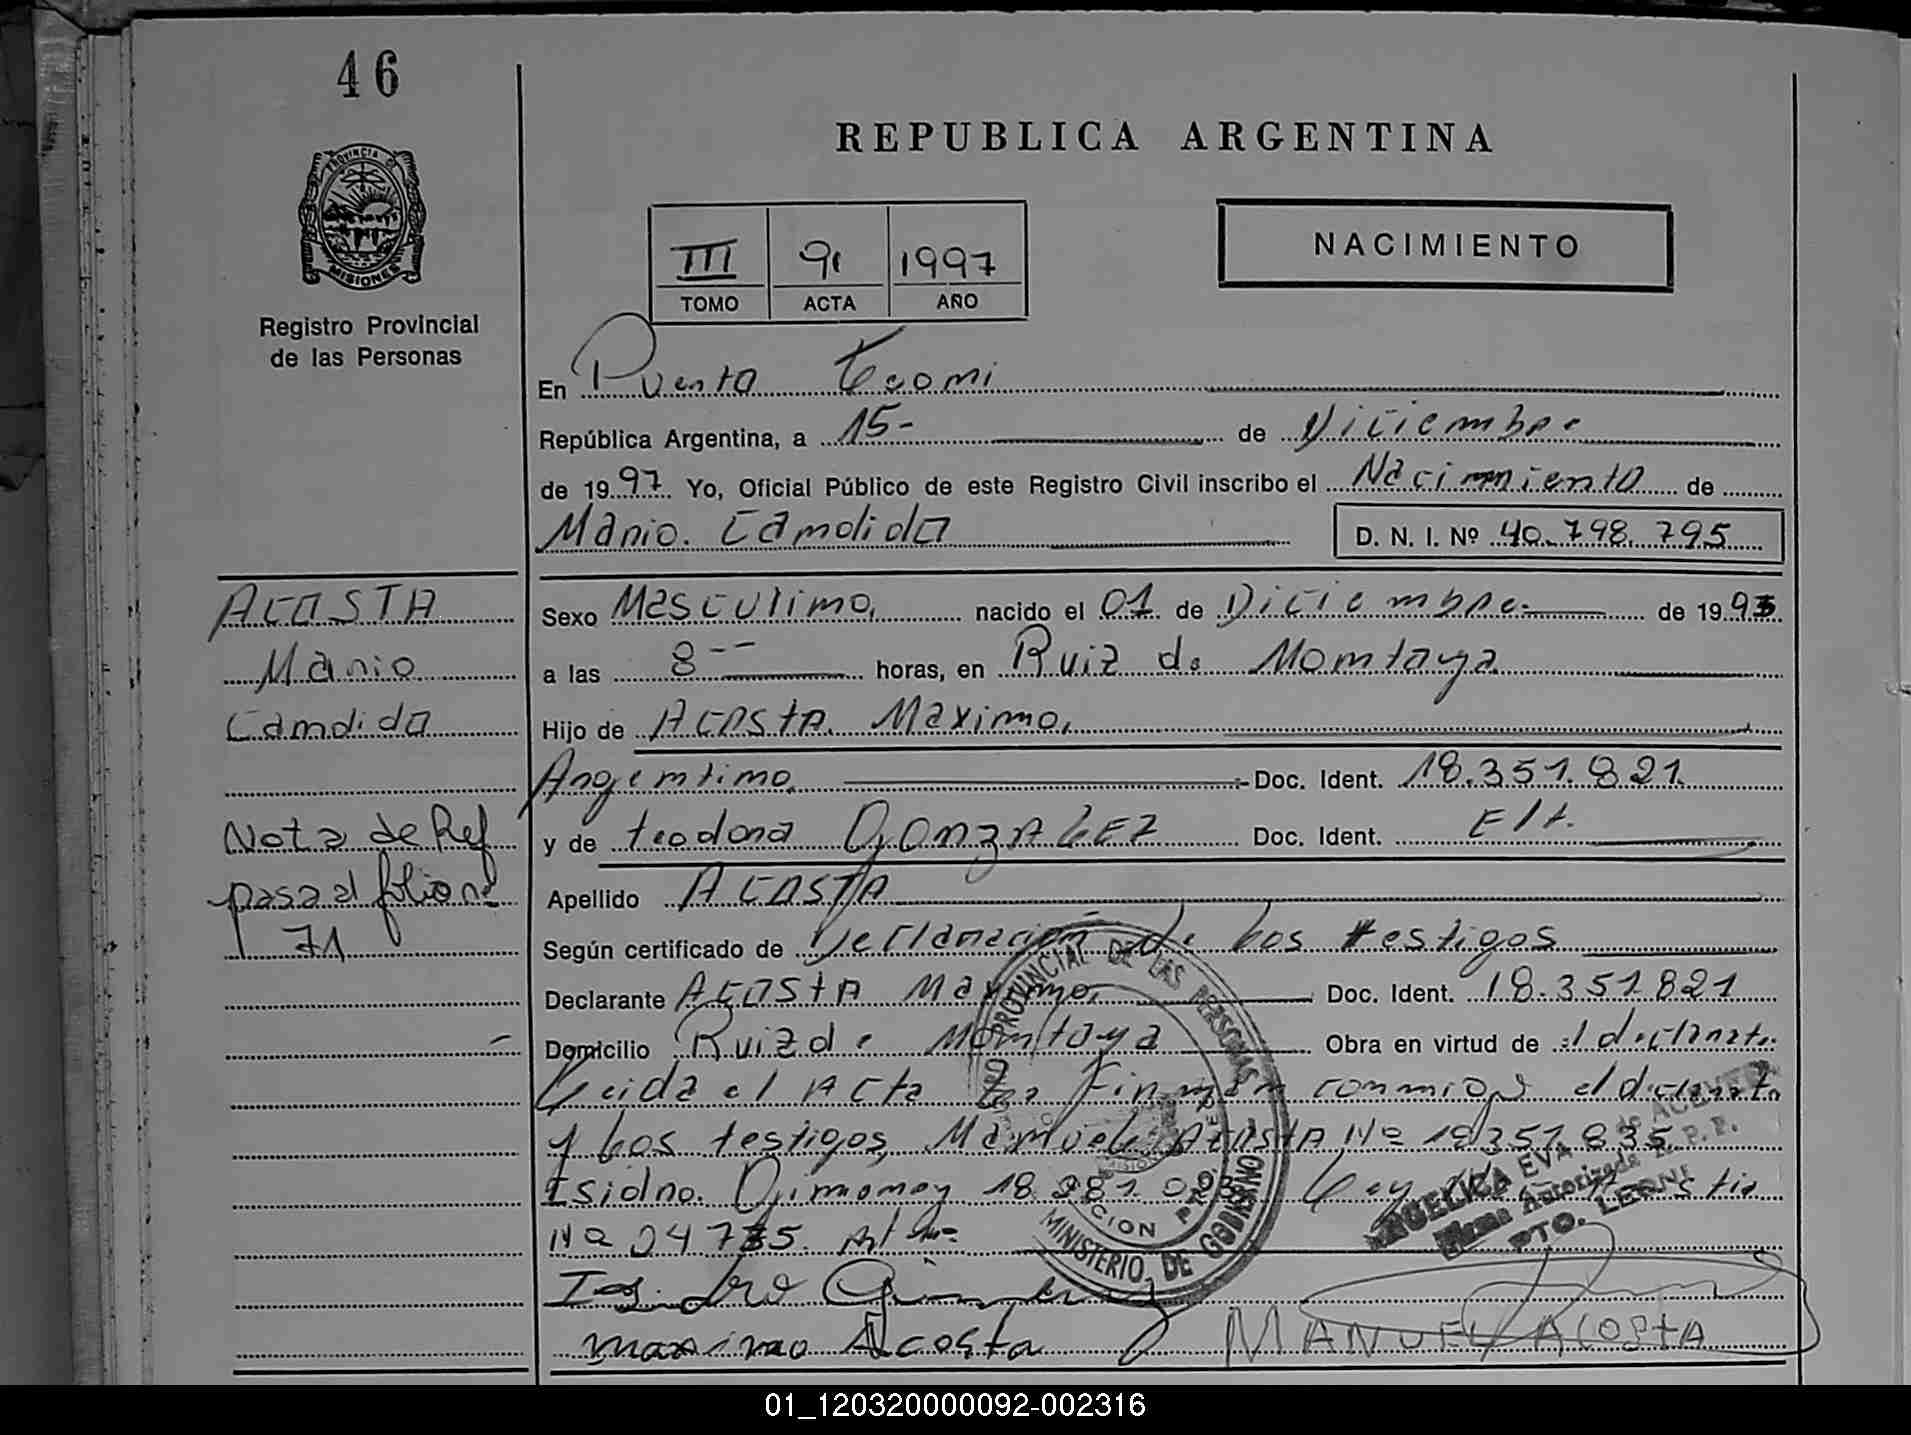 46
PROVINCIA DE
MISIONES
Registro Provincial
de las Personas
REPUBLICA ARGENTINA
III 91 1997
TOMO ACTA AÑO
NACIMIENTO
En Puerto Leoni
República Argentina, a 15- de Diciembre
de 1997 Yo, Oficial Público de este Registro Civil inscribo el Nacimiento de
Mario Candido
D. N. I. Nº 40.798.795
ACOSTA
Mario
Candido
Nota de Ref
pasa al folio nº
71
Sexo Masculino, nacido el 01 de Diciembre de 1993
a las 8-- horas, en Ruiz de Montoya
Hijo de Acosta Maximo,
Argentino, Doc. Ident. 18.351.821
y de teodora GONZALEZ Doc. Ident. E/t.
Apellido ACOSTA
Según certificado de Declaración de los testigos
Declarante ACOSTA Maximo, Doc. Ident. 18.351.821
Domicilio Ruiz de Montoya Obra en virtud de el declarate
Leida el Acta La Firman conmigo el declarate
y los testigos, Manuel ACOSTA Nº 18351.835
Isidro Gimenez 18
Nº 24735
Isidro Gimenez
maximo Acosta
MANUEL ACOSTA
PROVINCIAL DE LAS PERSONAS
MINISTERIO DE GOBIERNO
ANGELICA EVA de ACEVEDO
Firma Autorizada R. P. P.
PTO. LEONI
01_120320000092-002316